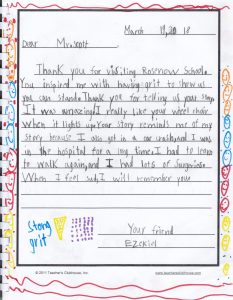 March 19, 20 18
Dear Mr. Scott
Thank you for visiting Rosenow School.
You inspired me with having grit to show us
you can stand. Thank you for telling us your story.
It was amazing! I really like your weel chair
when it lights up. Your story reminds me of my
story because I also got in a car crash and I was
in the hospital for a long time. I had to learn
to walk again and I had lots of
When I feel sad, I will remember you.
Stong
grit
Your friend
Ezekiel
© 2011 Teacher's Clubhouse, Inc.
www.teachersclubhouse.com